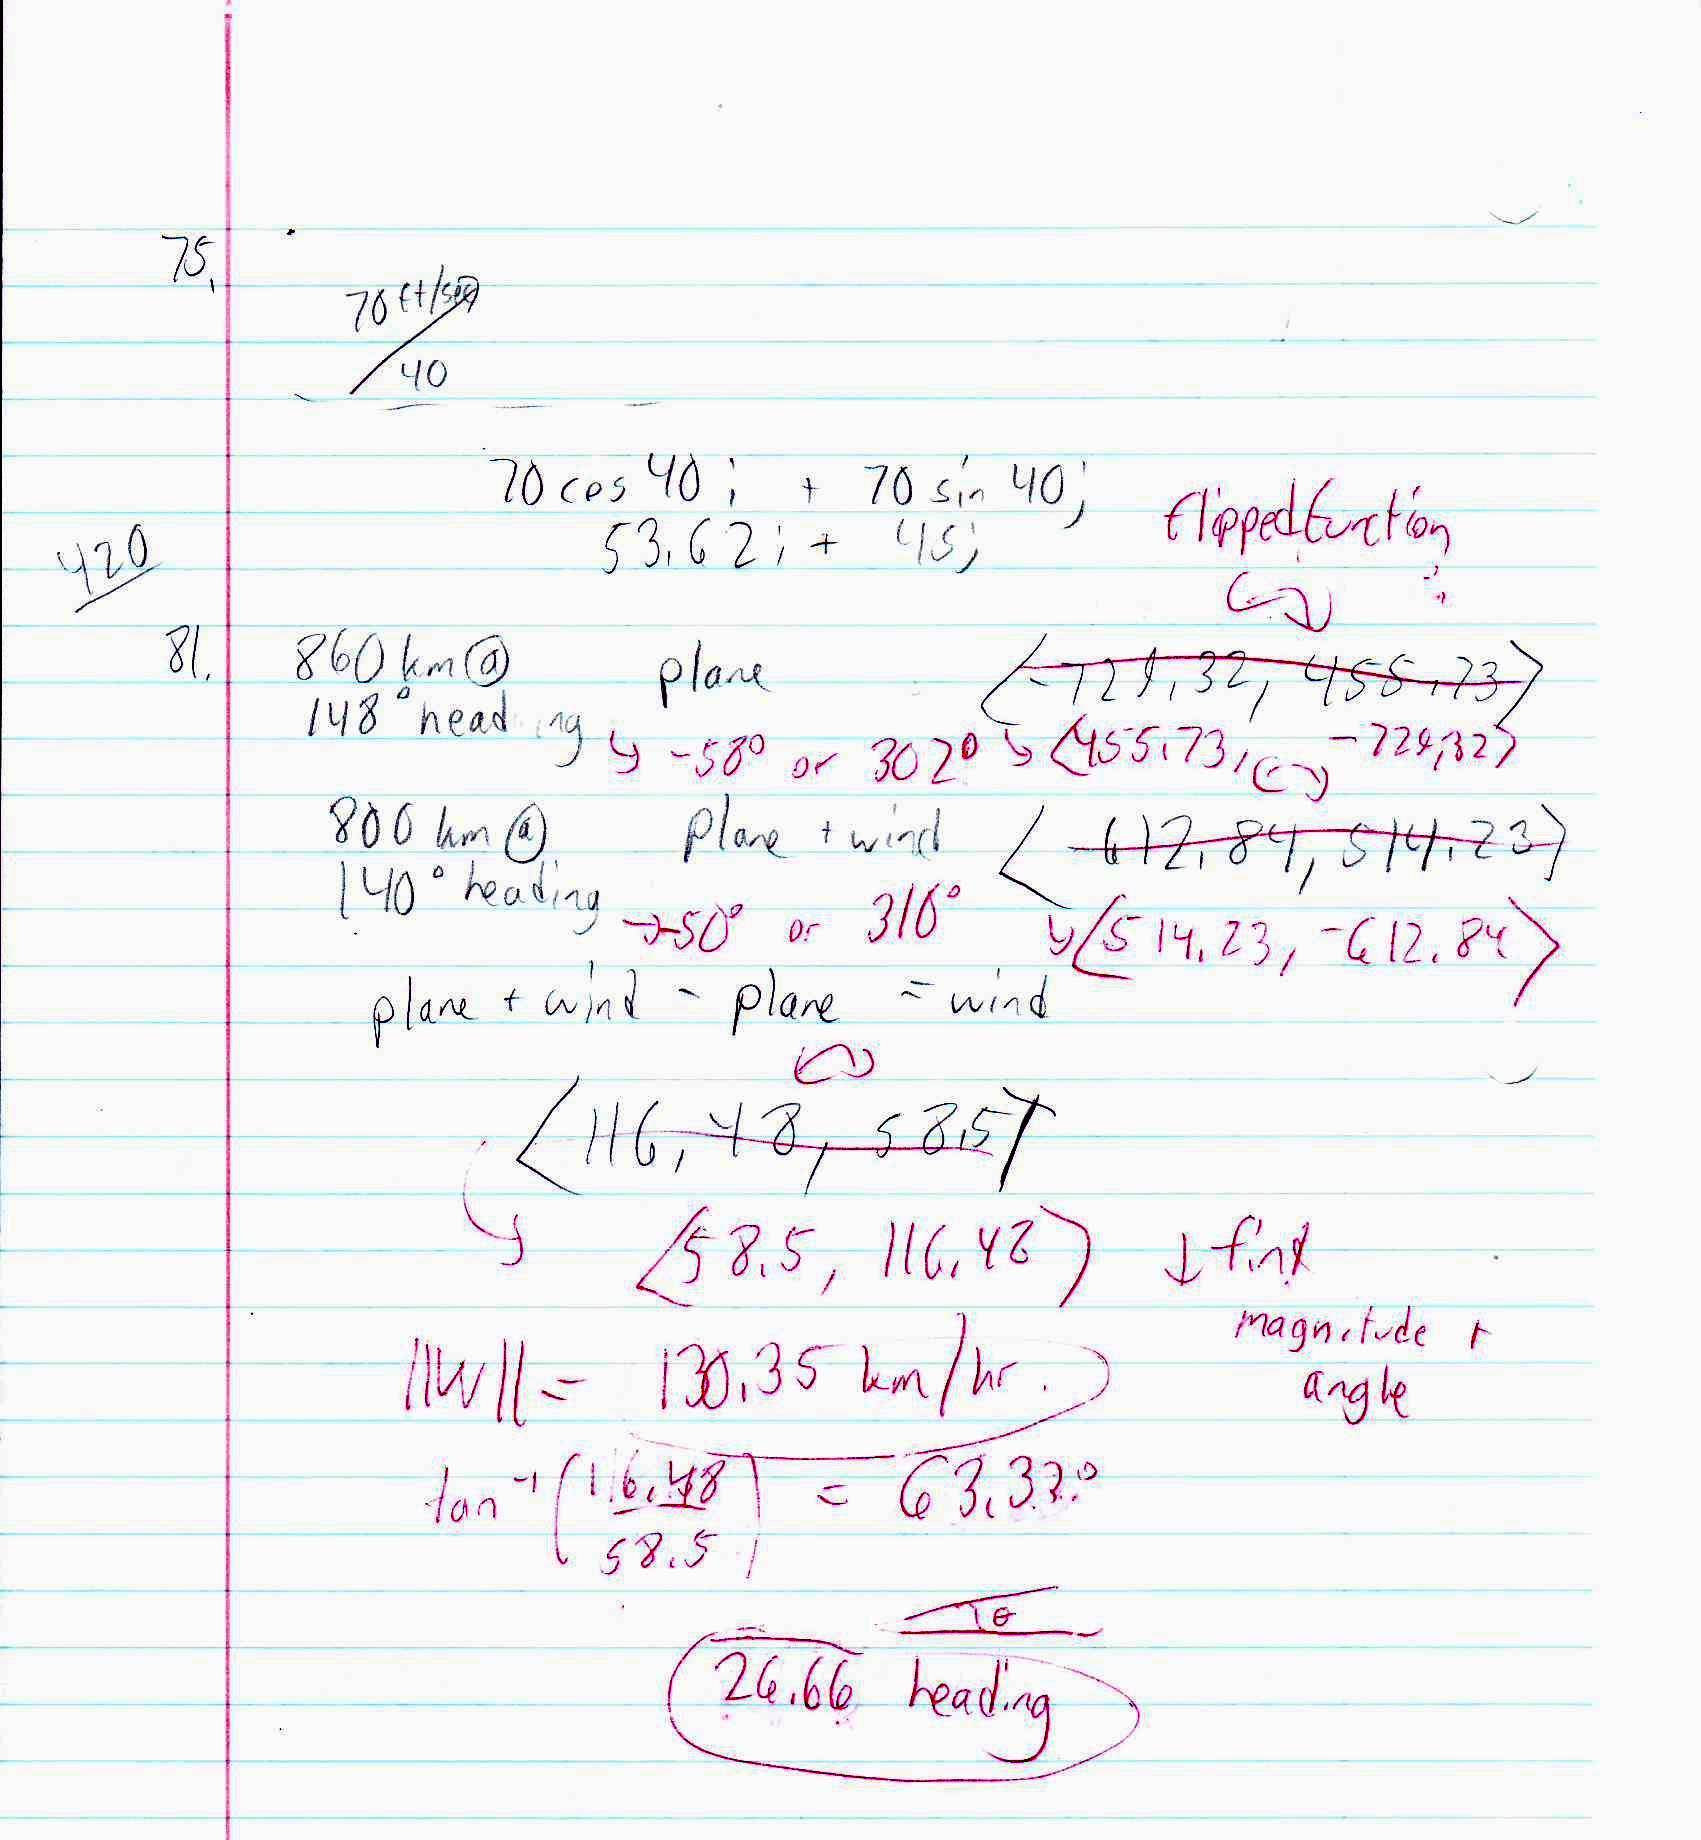 75.
70 ft/sec
40
70 cos 40 i + 70 sin 40 j
53.62 i + 45 j
flipped function
420
81. 860 km @ plane <-729.32, 455.73>
148° heading → -58° or 302° → <455.73, -729.32>
800 km @ plane + wind <-612.84, 514.23>
140° heading → -50° or 310° → <514.23, -612.84>
plane + wind - plane = wind
<116.48, 58.5>
<58.5, 116.48> ↓ find
magnitude +
angle
||W|| = 130.35 km/hr.
tan⁻¹(116.48/58.5) = 63.33°
θ
26.66 heading